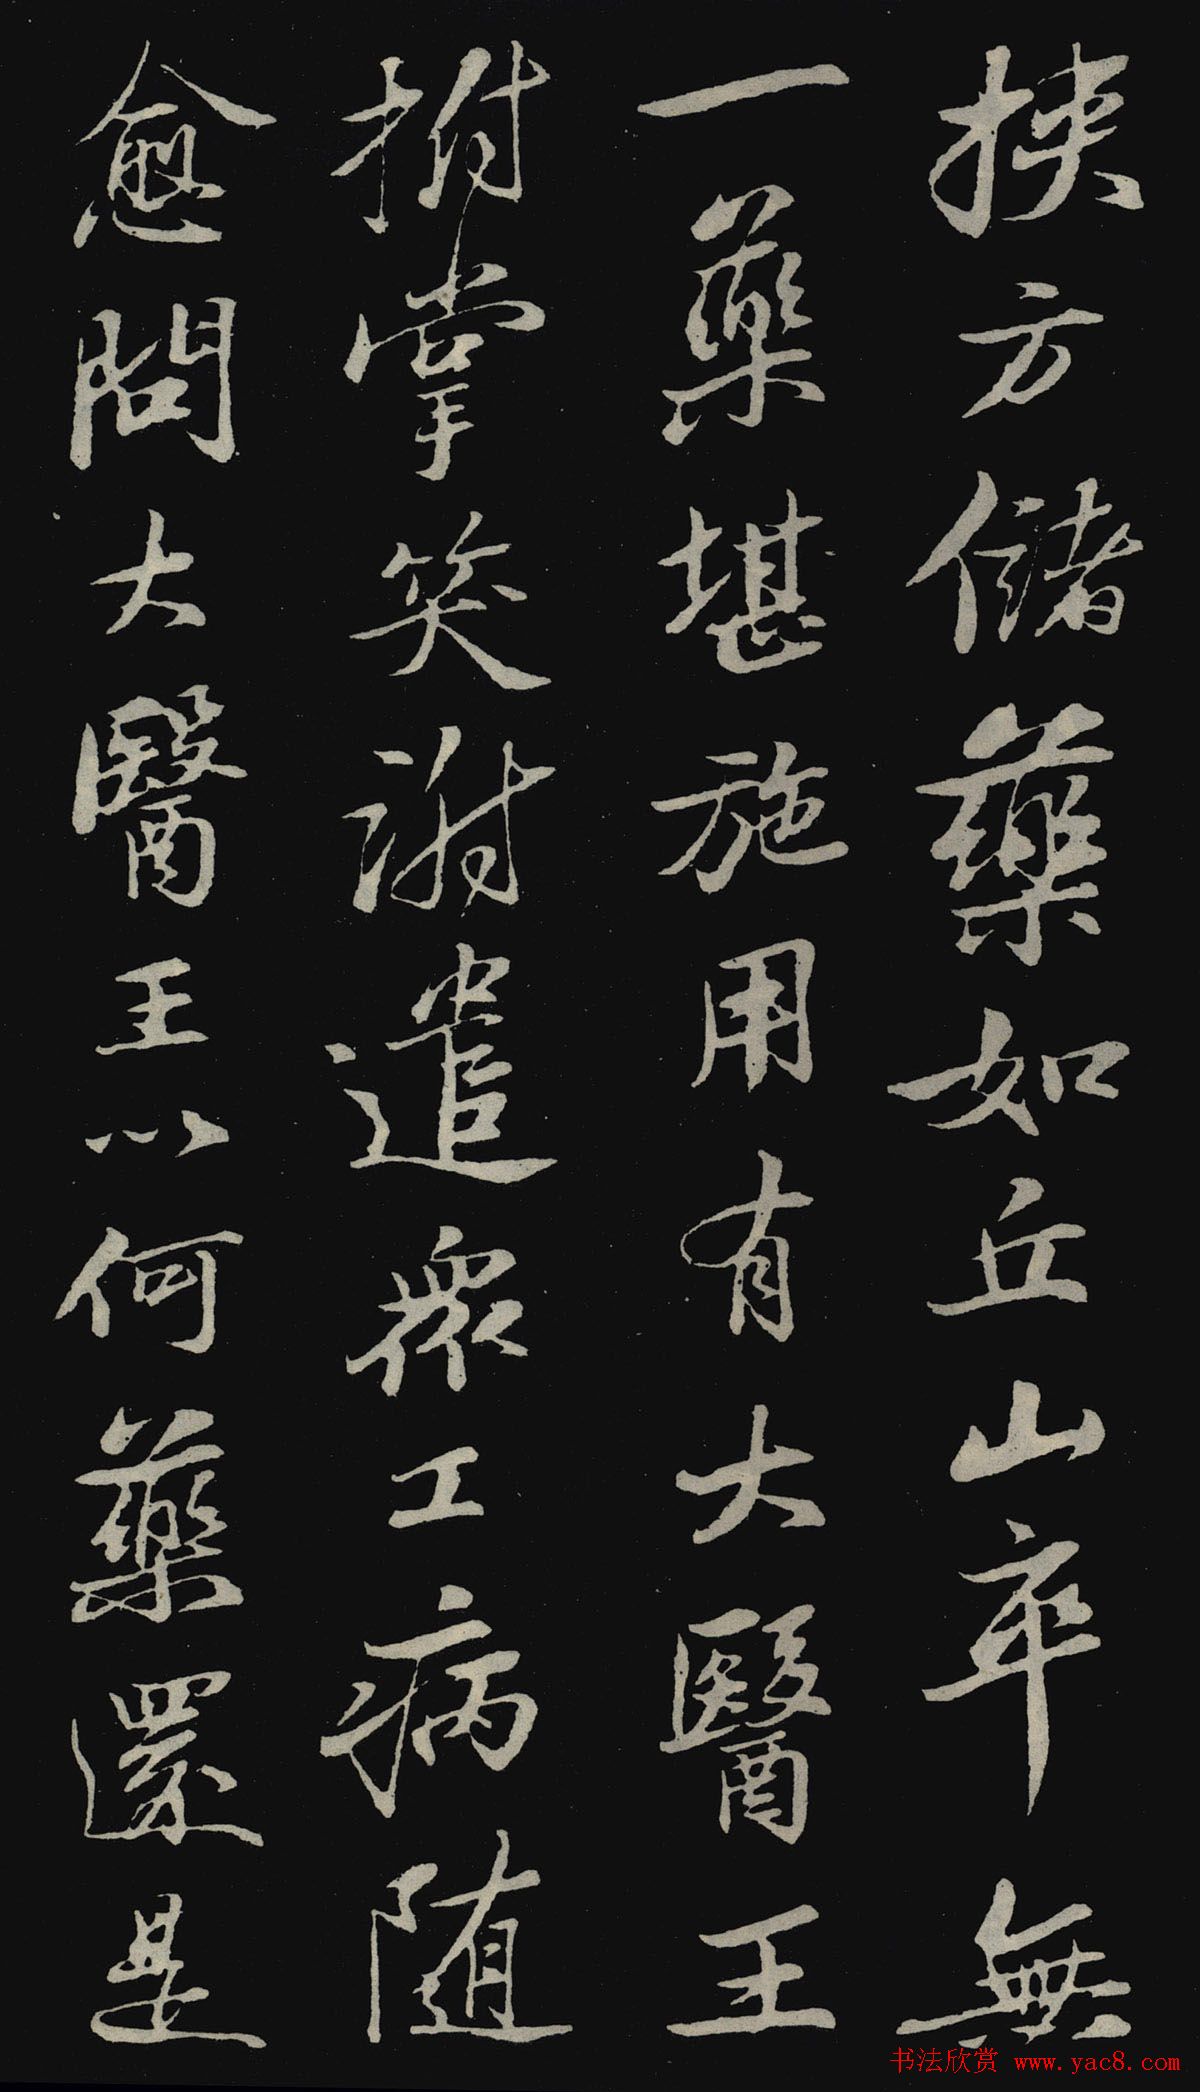 挾方儲藥如丘山卒無
一藥堪施用有大醫王
拊掌笑謝遣眾工病隨
愈問大醫王以何藥還是
书法欣赏 www.yac8.com